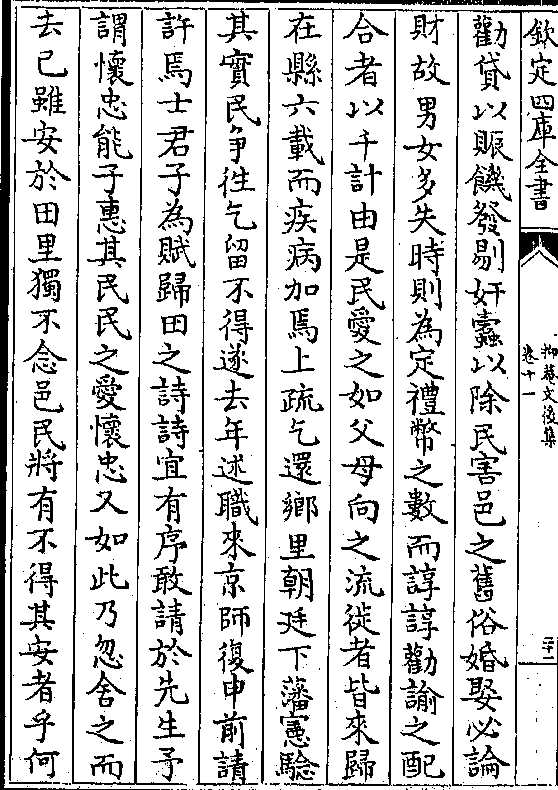 欽定四庫全書
抑菴文後集
卷十一
二十二
勸貸以賑饑發剔奸蠹以除民害邑之舊俗婚娶必論
財故男女多失時則為定禮幣之數而諄諄勸諭之配
合者以千計由是民愛之如父母向之流徙者皆來歸
在縣六載而疾病加焉上疏乞還鄉里朝廷下藩憲驗
其實民爭徃乞留不得遂去年述職來京師復申前請
許焉士君子為賦歸田之詩詩宜有序敢請於先生予
謂懷忠能子惠其民民之愛懷忠又如此乃忽舍之而
去已雖安於田里獨不念邑民將有不得其安者乎何